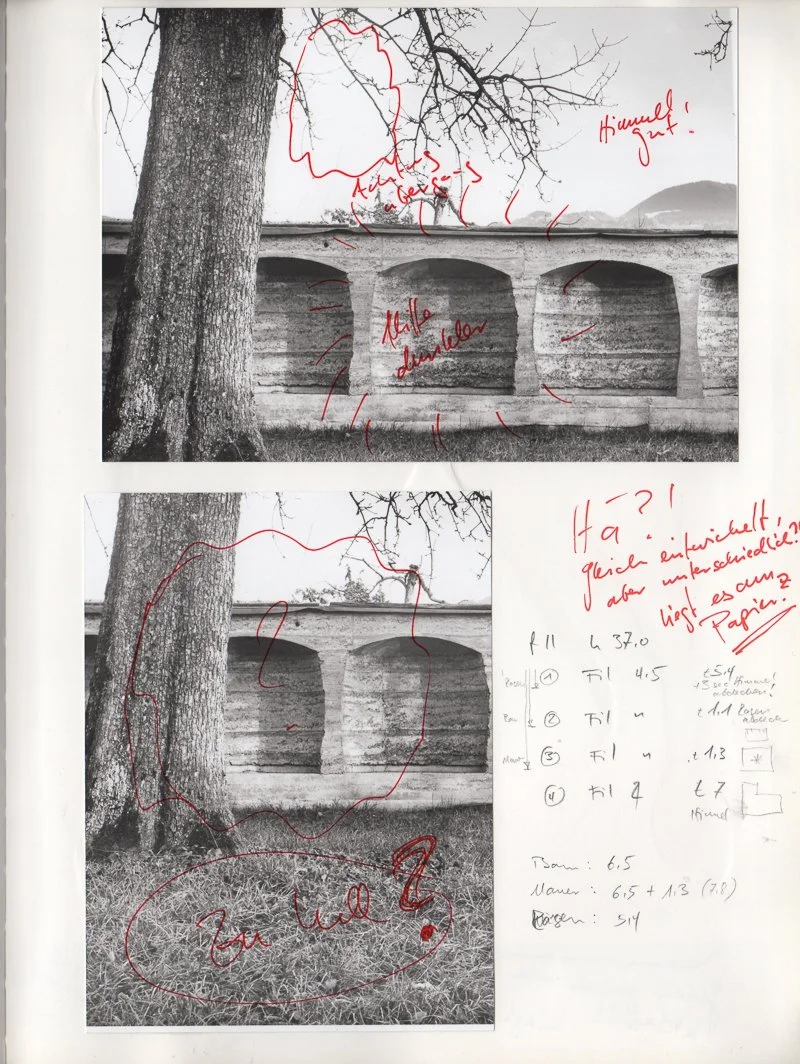 Himmel
gut!
Achtung
übergang
Mitte
dunkler
Hä?!
gleich entwickelt,
aber unterschiedlich?!
liegt es am
Papier?
f 11 h 37.0
① Fil 4.5 t 5.4
+3 sec Himmel
abdecken!
② Fil " t 1.1
③ Fil " t 1.3
④ Fil t 7
Himmel
Baum: 6.5
Mauer: 6.5 + 1.3 (7.8)
Rasen: 5.4
?
Zu hell ?